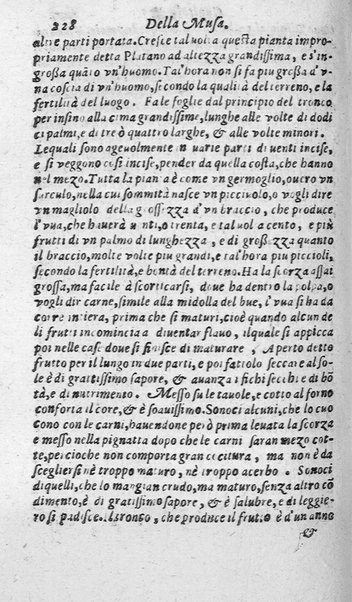 228 Della Musa.
altre parti portata. Cresce tal uolta questa pianta impro-
priamente detta Platano ad altezza grandissima, e s'in-
grossa quāto vn'huomo. Tal'hora non si fa piu grossa d'v
na coscia di vn'huomo, secondo la qualità del terreno, e la
fertilità del luogo. Fa le foglie dal principio del tronco
per insino alla cima grandissime, lunghe alle volte di dodi
ci palmi, e di tre ò quattro larghe, & alle volte minori.
Lequali sono ageuolmente in uarie parti di uenti incise,
e si veggono cosi incise, pender da quella costa, che hanno
nel mezo. Tutta la piāta è come vn germoglio, ouero vn
sarculo, nella cui sommità nasce vn picciuolo, o vogli dire
vn magliolo della grossezza d'vn braccio, che produce
l'vua, che hauerà venti, o trenta, e tal uol a cento, e piu
frutti di vn palmo di lunghezza, e di grossezza quanto
il braccio, molte volte piu grandi, e tal'hora piu piccioli,
secondo la fertilità, e bontà del terreno. Ha la scorza assai
grossa, ma facile à scorticarsi, doue ha dentro la polpa, o
vogli dir carne, simile alla midolla del bue, l'vua si ha da
corre intiera, prima che si maturi, cioè quando alcun de
li frutti incomincia a diuentar flauo, il quale si appicca
poi nelle case doue si finisce di maturare, Aperto detto
frutto per il lungo in due parti, e poi fattolo seccare al so-
le è di gratissimo sapore, & auanza i fichi secchi di bō
tà, e di nutrimento. Messo su le tauole, e cotto al forno
conforta il core, & è soauissimo. Sono ci alcuni, che lo cuo
cono con le carni, hauendone però prima leuata la scorza
e messo nella pignatta dopo che le carni saran mezo cot-
te, percioche non comporta gran cocitura, ma non è da
sceglier si nè troppo maturo, nè troppo acerbo. Sono ci
di quelli, che lo mangian crudo, ma maturo, senza altro cō
dimento, è di gratissimo sapore, & è salubre, e di leggie-
ro si padisce. Il tronco, che produce il frutto è d'un anno
&